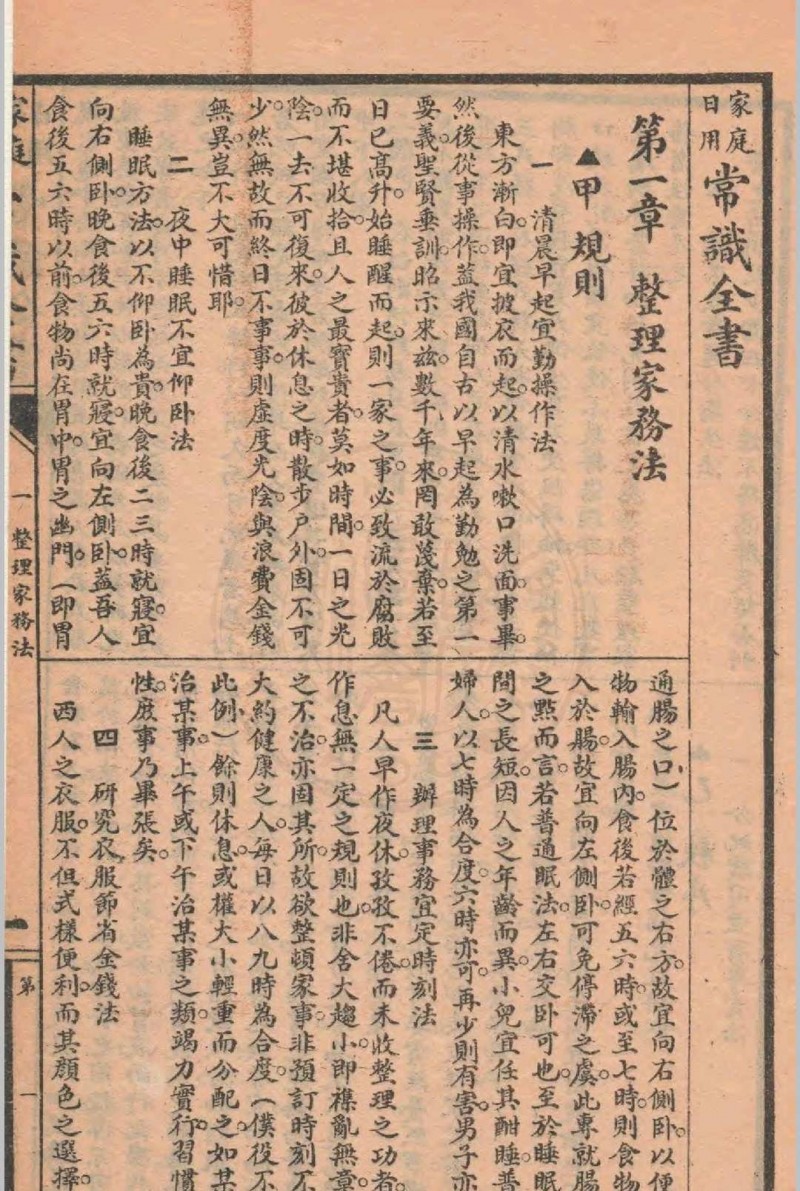 家庭
日用
常識全書
第一章 整理家務法
▲甲 規則
一 清晨早起宜勤操作法
東方漸白。即宜披衣而起。以清水嗽口洗面。事畢。
然後從事操作。蓋我國自古以早起為勤勉之第一
要義。聖賢垂訓。昭示來茲。數千年來。罔敢蔑棄。若至
日已高升。始睡醒而起。則一家之事。必致流於腐敗
而不堪收拾。且人之最寶貴者。莫如時間。一日之光
陰。一去不可復來。彼於休息之時。散步戶外。固不可
少。然無故而終日不事事。則虛度光陰。與浪費金錢
無異。豈不大可惜耶。
二 夜中睡眠不宜仰卧法
睡眠方法。以不仰卧為貴。晚食後二三時就寢。宜
向右側卧。晚食後五六時就寢。宜向左側卧。蓋吾人
食後五六時以前。食物尚在胃中。胃之幽門。（即胃
通腸之口）位於體之右方。故宜向右側卧。以便
物輸入腸內。食後若經五六時。或至七時。則食物
入於腸。故宜向左側卧。可免停滯之虞。此專就腸
之點而言。若普通眠法。左右交卧可也。至於睡眠
間之長短。因人之年齡而異。小兒宜任其酣睡。普
婦人。以七時為合度。六時亦可。再少則有害。男子亦
三 辦理事務宜定時刻法
凡人早作夜休。孜孜不倦。而未收整理之功者。
作息無一定之規則也。非舍大趨小。即襍亂無章
之不治。亦固其所。故欲整頓家事。非預訂時刻不
大約健康之人。每日以八九時為合度。（僕役不
此例）餘則休息。或權大小輕重而分配之。如某
治某事。上午或下午治某事之類。竭力實行。習慣
性。庶事乃畢張矣。
四 研究衣服節省金錢法
西人之衣服。不但式樣便利。而其顏色之選擇。
一 整理家務法
第
一